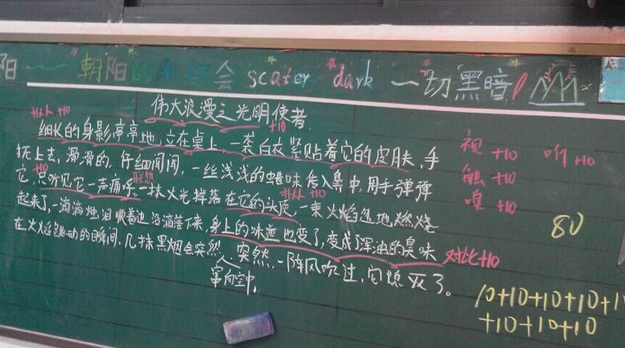 阳 朝阳的 会 scater dark 一切黑暗!
伟大浪漫之光明使者
拟人 +10 +10
细长的身影亭亭地立在桌上,一袭白衣紧贴着它的皮肤,手
抚上去,滑滑的,仔细闻闻,一丝浅浅的蜡味传入鼻中,用手弹弹
它,只听见它一声痛 一抹火光掉落在它的头顶,一束火焰 地燃烧
起来了,一滴滴 泪顺着 滴落下来,身上的味道也变了,变成了浑浊的臭味
在火焰跳动的瞬间,几抹黑烟会突然 突然,一阵风吹过,它熄灭了。
窜向空中,
视 +10 听 +10
触 +10
嗅 +10
对比+10
80
10+10+10+10+1
+10+10+10